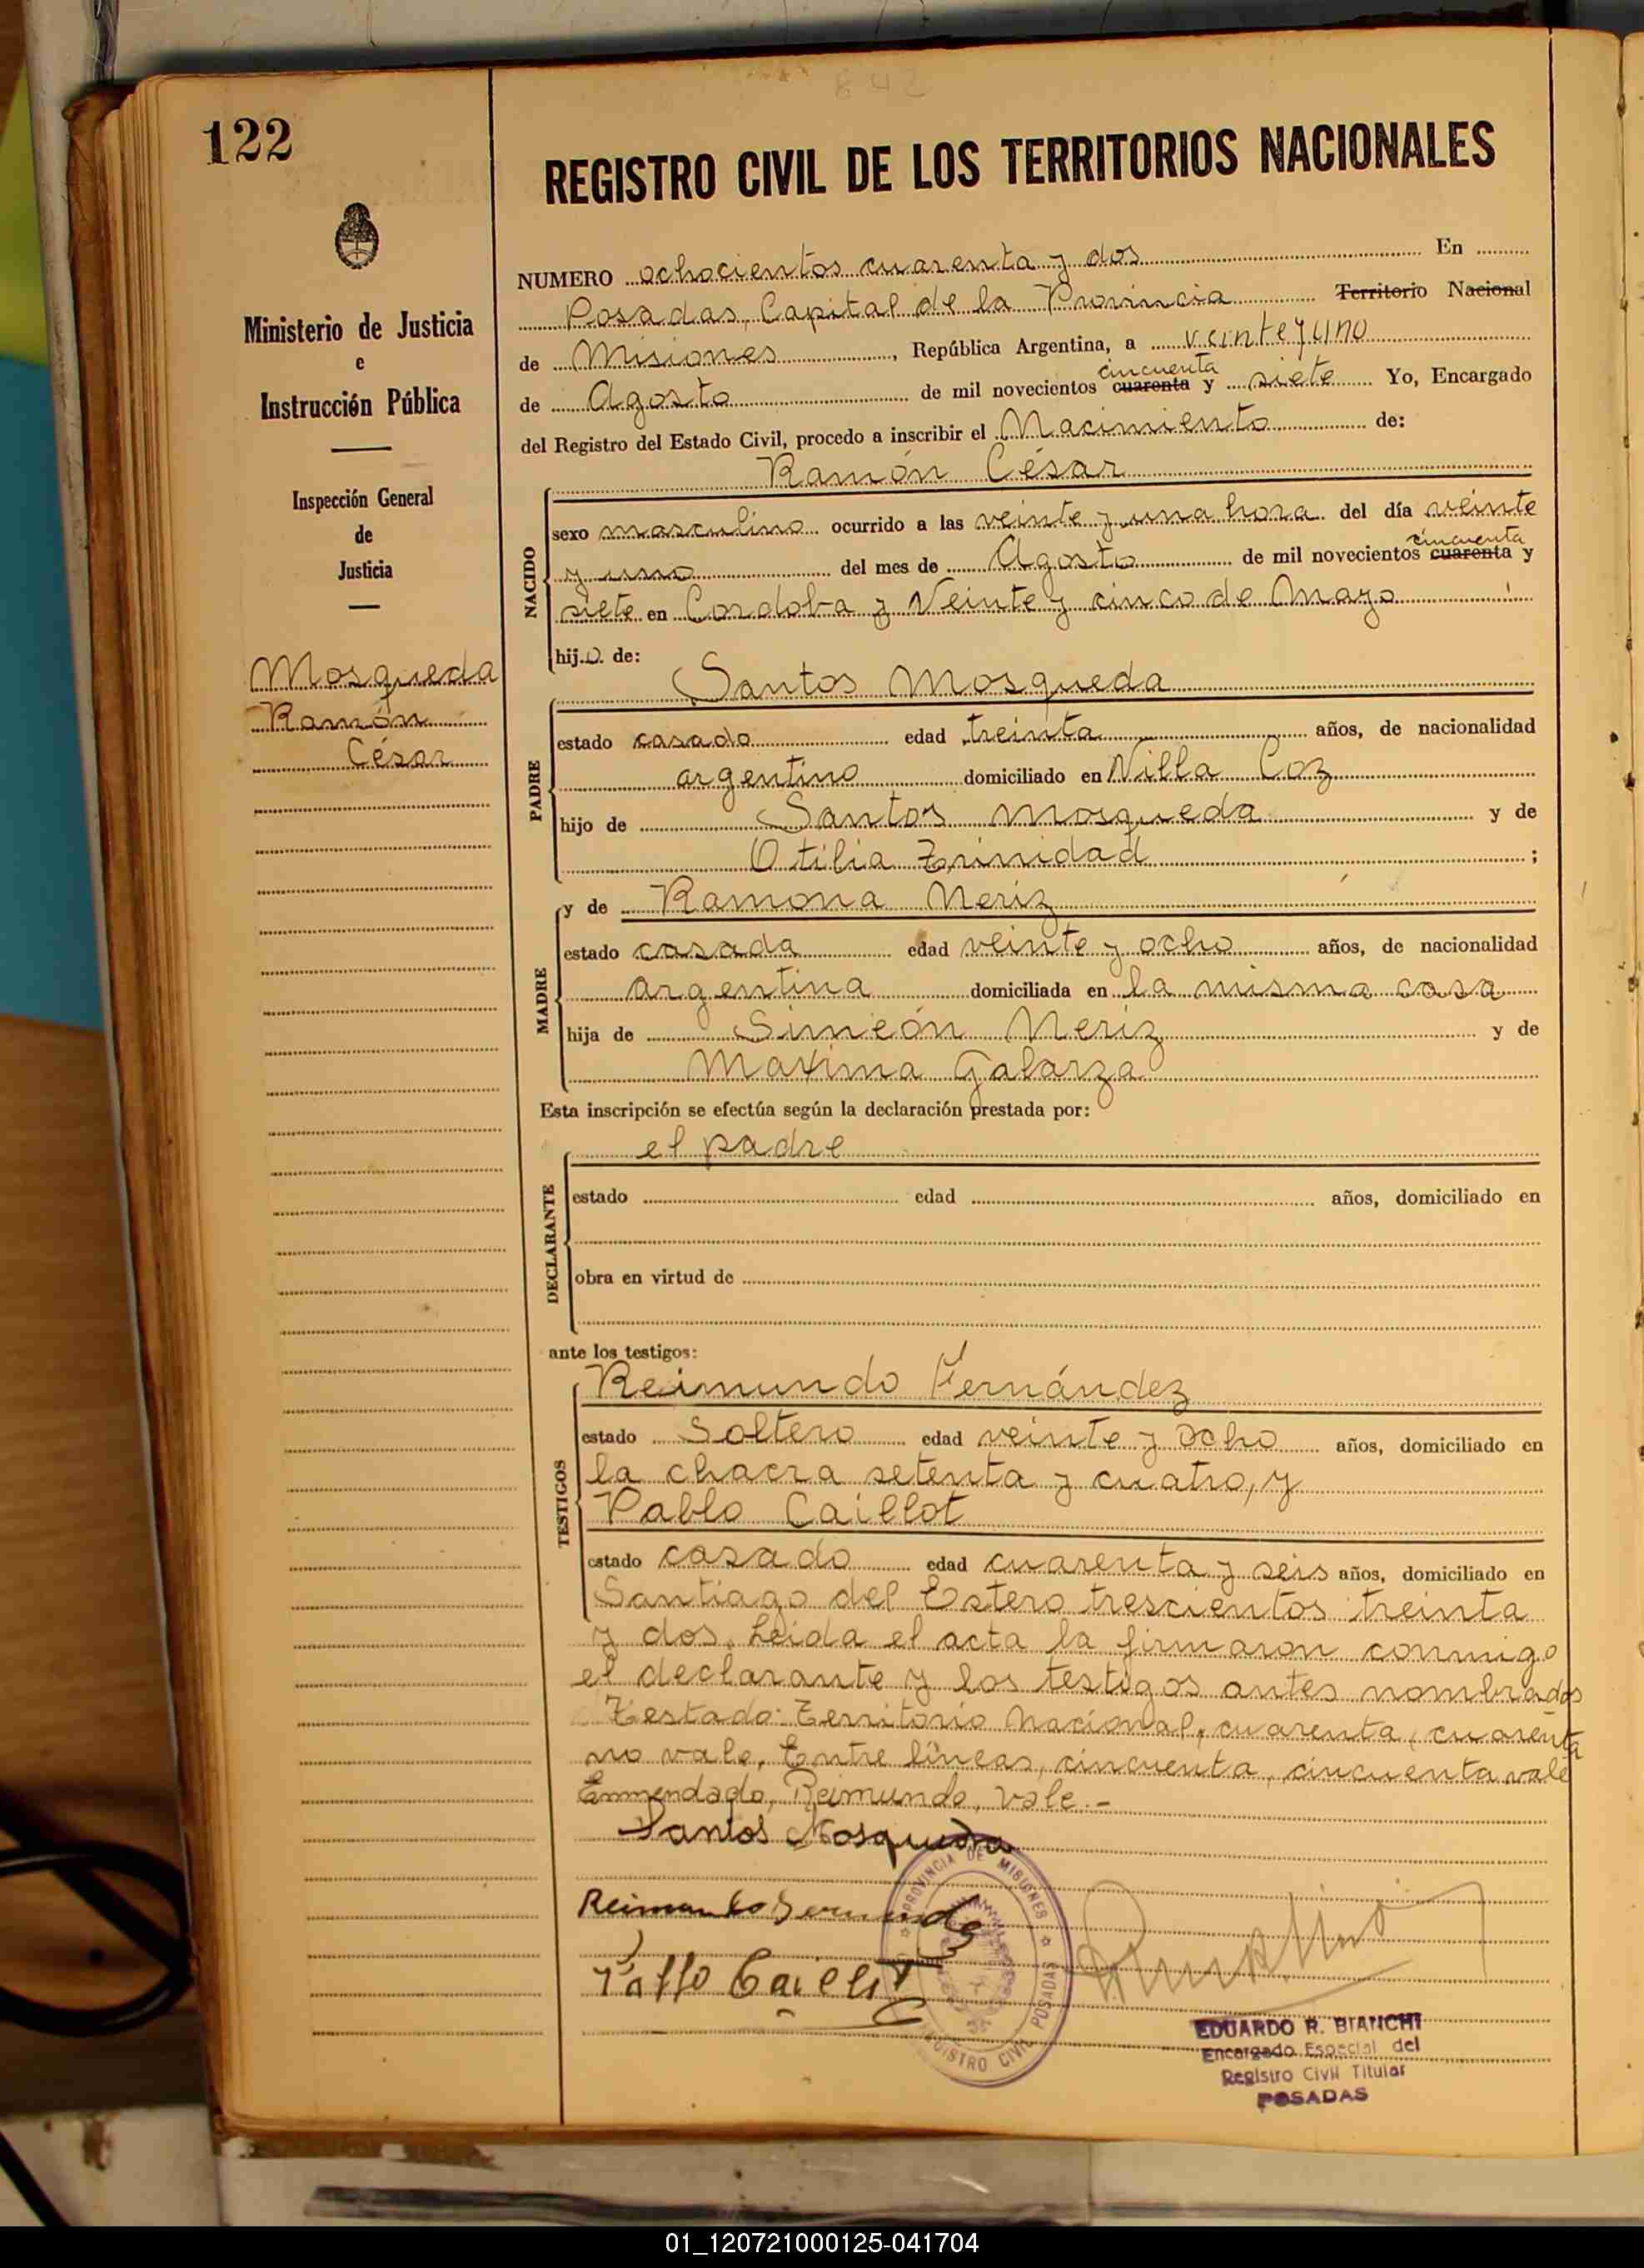 842
122
REGISTRO CIVIL DE LOS TERRITORIOS NACIONALES
Ministerio de Justicia
e
Instrucción Pública
Inspección General
de
Justicia
Mosqueda
Ramón
César
NUMERO ochocientos cuarenta y dos En
Posadas, Capital de la Provincia Territorio Nacional
de Misiones, República Argentina, a veinte y uno
cincuenta
de Agosto de mil novecientos cuarenta y siete Yo, Encargado
del Registro del Estado Civil, procedo a inscribir el Nacimiento de:
Ramón César
NACIDO
sexo masculino ocurrido a las veinte y una hora del día veinte
cincuenta
y uno del mes de Agosto de mil novecientos cuarenta y
siete en Cordoba y Veinte y cinco de Mayo
hijo de:
Santos Mosqueda
PADRE
estado casado edad treinta años, de nacionalidad
argentino domiciliado en Villa Coz
hijo de Santos Mosqueda y de
Otilia Trinidad ;
y de Ramona Neriz
MADRE
estado casada edad veinte y ocho años, de nacionalidad
argentina domiciliada en la misma casa
hija de Simeón Neriz y de
Maxima Galarza
Esta inscripción se efectúa según la declaración prestada por:
el padre
DECLARANTE
estado edad años, domiciliado en
obra en virtud de
ante los testigos:
Reimundo Fernández
TESTIGOS
estado Soltero edad veinte y ocho años, domiciliado en
la chacra setenta y cuatro, y
Pablo Caillot
estado casado edad cuarenta y seis años, domiciliado en
Santiago del Estero trescientos treinta
y dos. Leida el acta la firmaron conmigo
el declarante y los testigos antes nombrados
Testado: Territorio Nacional, cuarenta, cuarenta
no vale. Entre líneas, cincuenta, cincuenta vale
Enmendado, Reimundo, vale.-
Santos Mosqueda
PROVINCIA DE MISIONES
REGISTRO CIVIL POSADAS
EDUARDO R. BIANCHI
Encargado Especial del
Registro Civil Titular
POSADAS
01_120721000125-041704